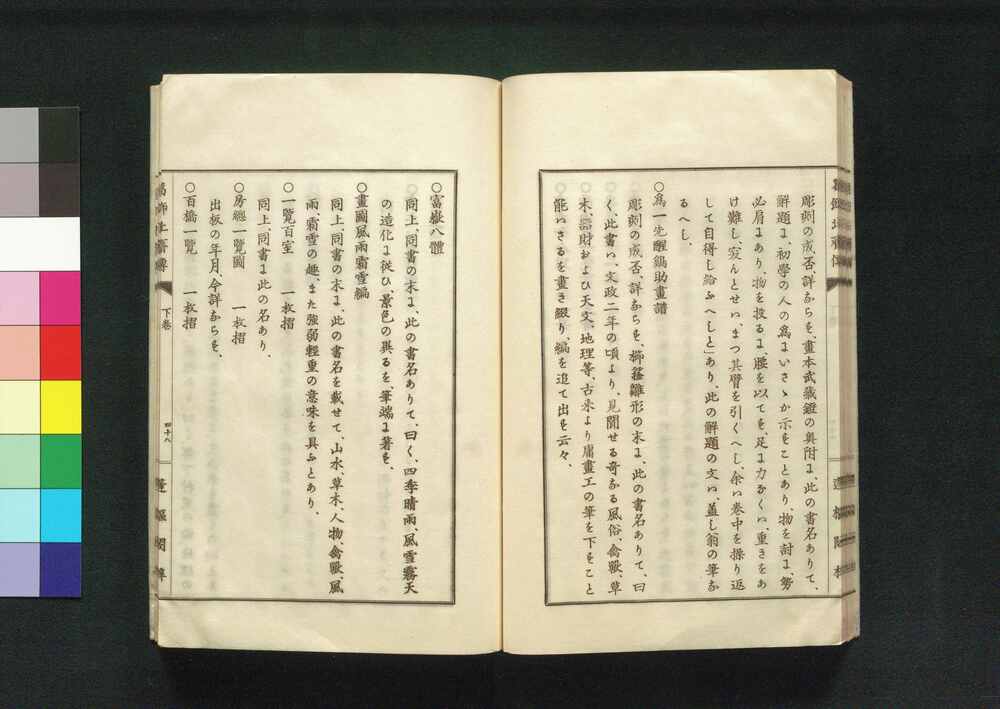 彫刻の成否、詳ならず、畫本武藏鐙の奥附に、此の書名ありて、
解題に、初學の人の爲にいさゝか示すことあり、物を討に、勢
必肩にあり、物を投るに、腰を以てす、足に力なくハ、重きをあ
け難し、寂んとせハ、まつ其臂を引くへし、余ハ巻中を操り返
して自得し給ふへしと」あり、此の解題の文ハ、蓋し翁の筆な
るへし、
〇爲一先醒鍋助畫譜
彫刻の成否、詳ならす、櫛䈇雛形の末に、此の書名ありて、曰
く、此書ハ、文政二年の頃より、見聞せる奇なる風俗、禽獸、草
木、器財および天文、地理等、古来より庸畫工の筆を下すこと
能ハさるを畫き綴り、編を追て出す云々、
〇富嶽八體
同上、同書の末に、此の書名ありて、曰く、四季晴雨、風雪霧天
の造化に從ひ、景色の異るを、筆端に著す、
〇畫圖風雨霜雪編
同上、同書の末に、此の書名を載せて、山水、草木、人物、禽獸、風
雨、霜雪の趣、また強弱輕重の意味を具ふとあり、
〇一覽百室　一枚摺
同上、同書に此の名あり、
〇房總一覽圖　一枚摺
出板の年月、今詳ならす、
〇百橋一覽　一枚摺
下巻
四十八